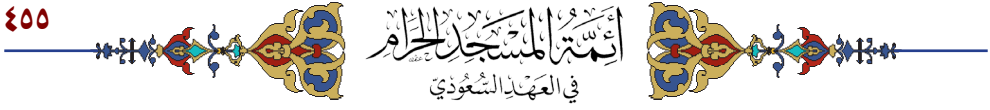 ٤٥٥
أَئِمَّةُ المَسْجِدِ الحَرَامِ
في العَهْدِ السُّعُودِيّ